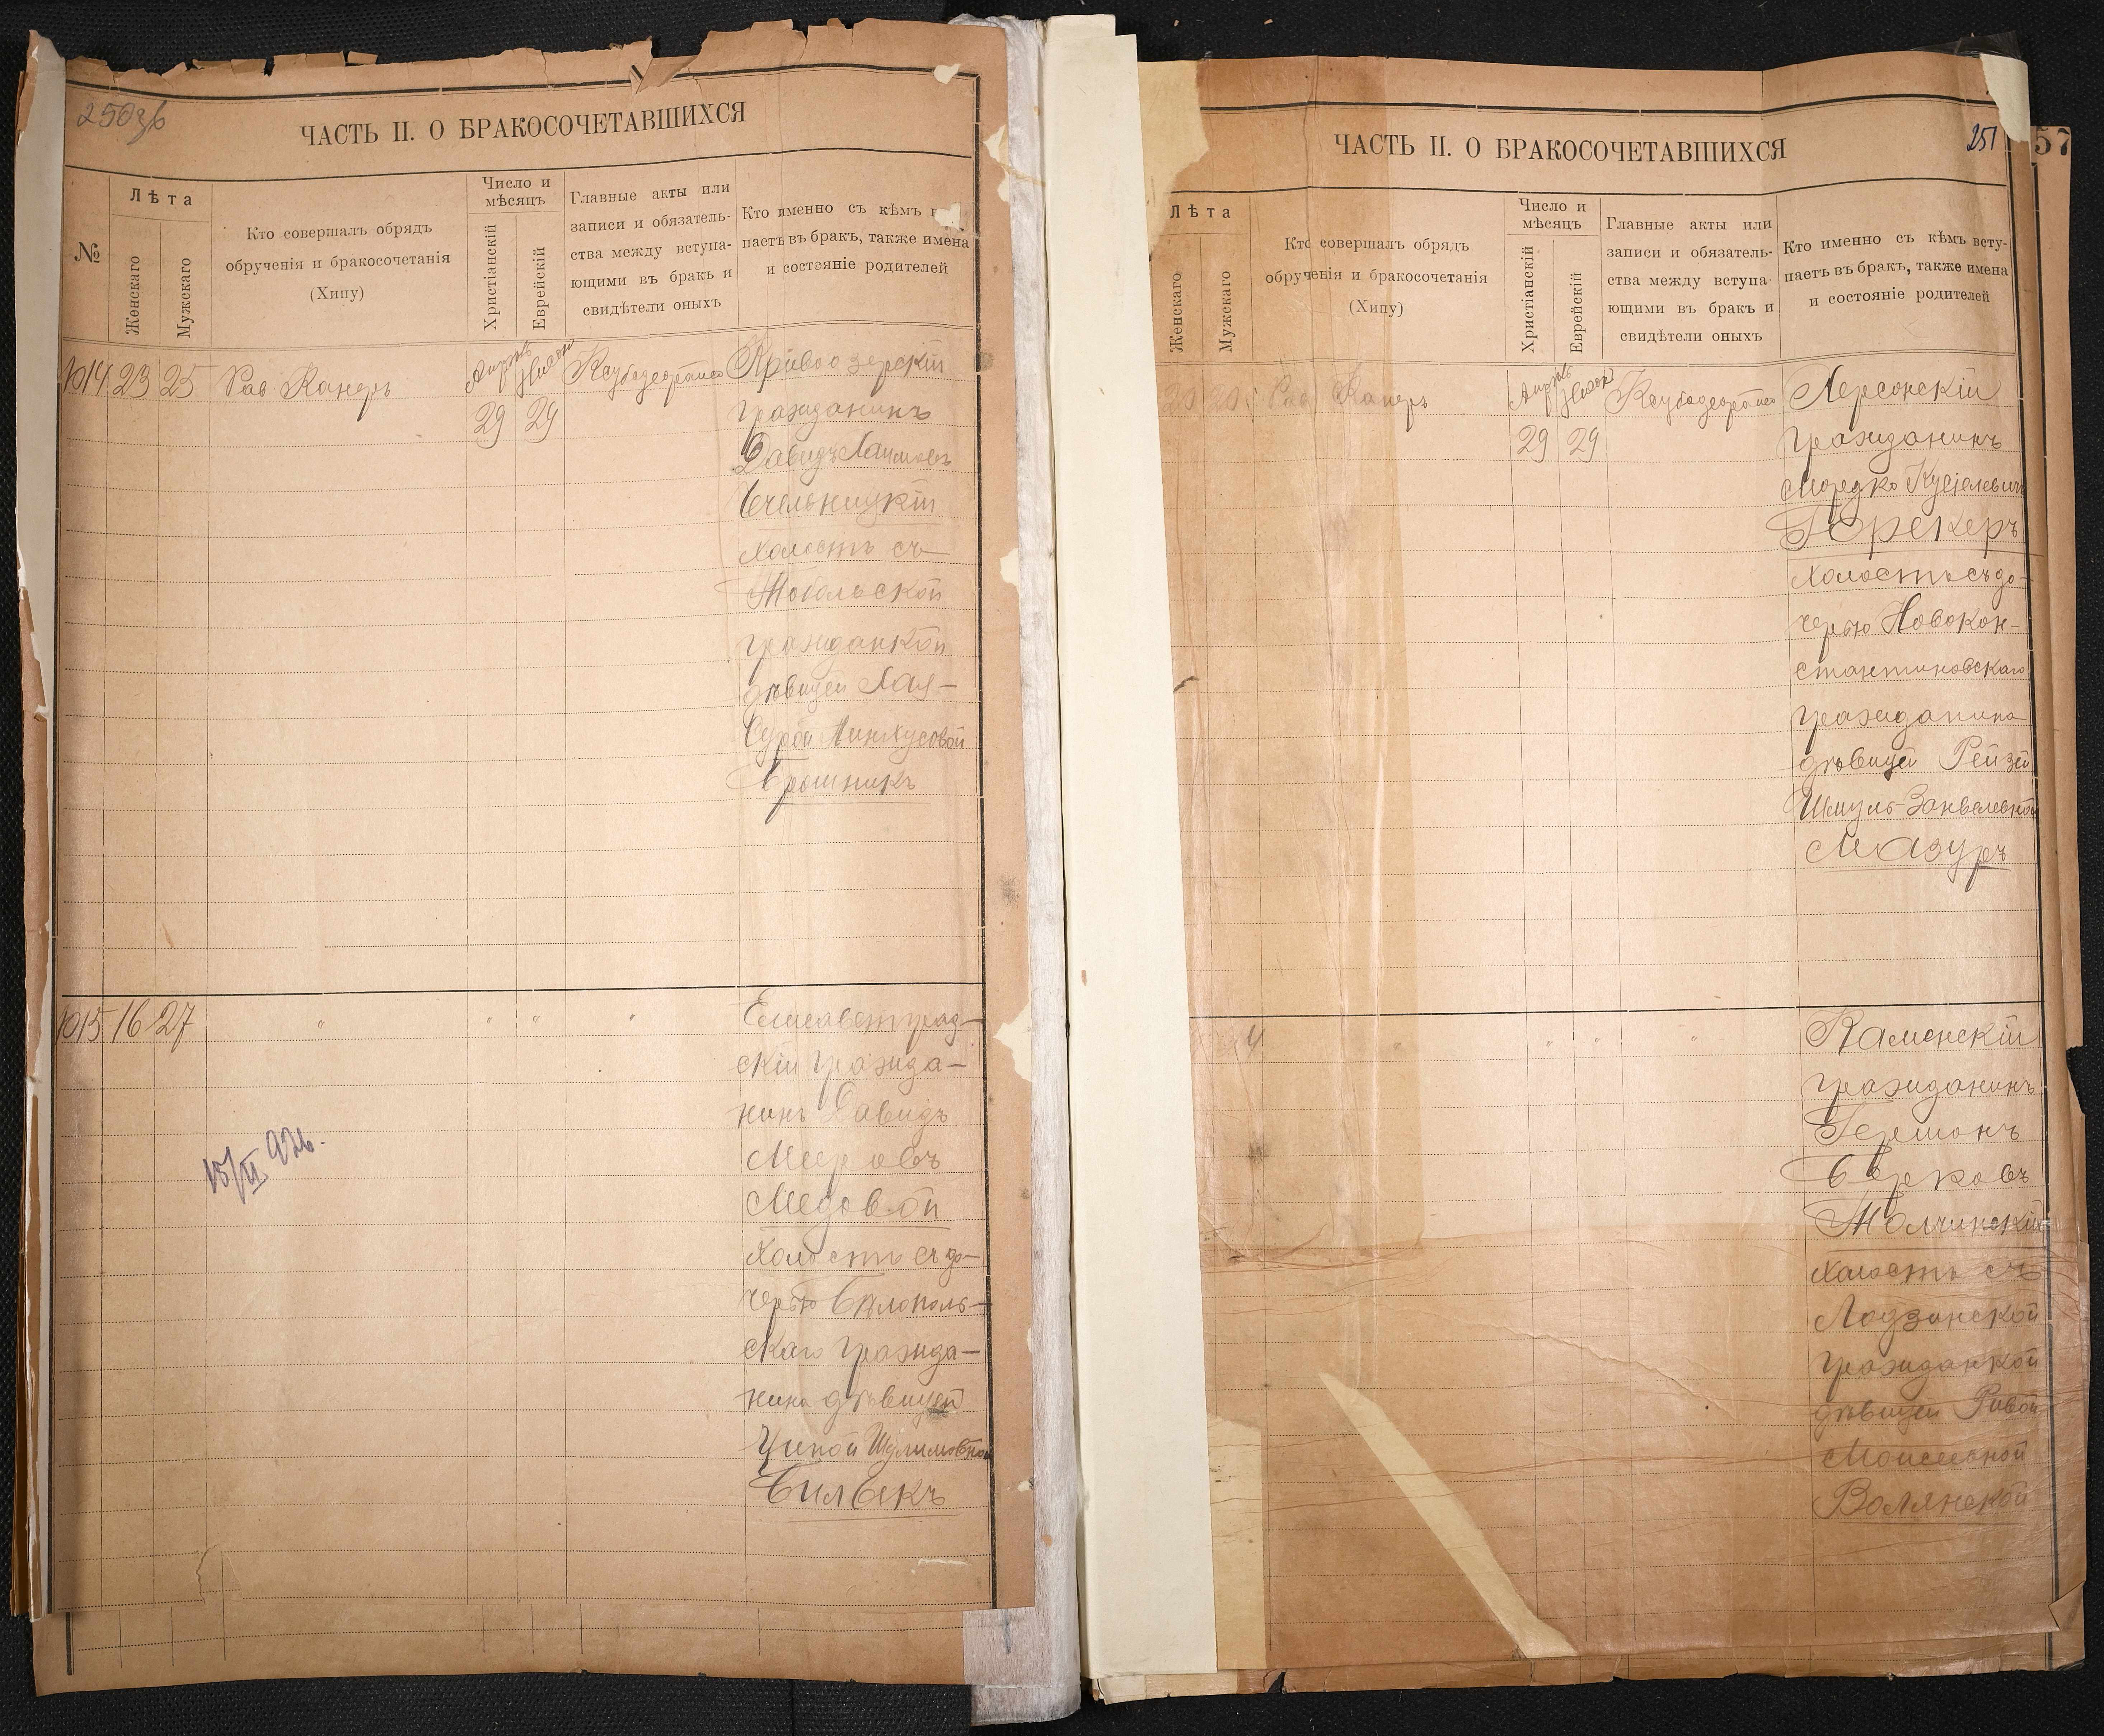 250зб
ЧАСТЬ II. О БРАКОСОЧЕТАВШИХСЯ
№
Лѣта
Женскаго
Мужскаго
Кто совершалъ обрядъ
обрученія и бракосочетанія
(Хипу)
Число и
мѣсяцъ
Христіанскій
Еврейскій
Главные акты или
записи и обязатель-
ства между вступа-
ющими въ бракъ и
свидѣтели оныхъ
Кто именно съ кѣмъ
паетъ въ бракъ, также имена
и состояніе родителей
1014 23 25 Рав Канеръ
29 29
Кривоозерскій
гражданинъ
Давидъ Хаимовъ
Бчельницкій
холостъ съ
Тобольской
гражданкой
дѣвицей Хая-
Сурой Пинхусовой
Брошникъ
1015 16 27 " " " "
Елисаветград-
скій гражда-
нинъ Давидъ
Мееровъ
Медовой
холостъ съ до-
черью Бѣлополь-
скаго гражда-
нина дѣвицей
Ципой Шулимовной
Билыкъ
15/VI 926.
251
57
ЧАСТЬ II. О БРАКОСОЧЕТАВШИХСЯ
Лѣта
Женскаго
Мужскаго
Кто совершалъ обрядъ
обрученія и бракосочетанія
(Хипу)
Число и
мѣсяцъ
Христіанскій
Еврейскій
Главные акты или
записи и обязатель-
ства между вступа-
ющими въ бракъ и
свидѣтели оныхъ
Кто именно съ кѣмъ всту-
паетъ въ бракъ, также имена
и состояніе родителей
Рав Канеръ
29 29
Херсонскій
гражданинъ
Мордко Кусіелевичъ
Герекеръ
холостъ съ до-
черью Новокон-
стантиновскаго
гражданина
дѣвицей Рейзей
Шмуль-Занвелевной
Мазуръ
" " " "
Каменскій
гражданинъ
Гершонъ
Берковъ
Толчинскій
холостъ съ
Лодзинской
гражданкой
дѣвицей Ривой
Моисеевной
Волянской